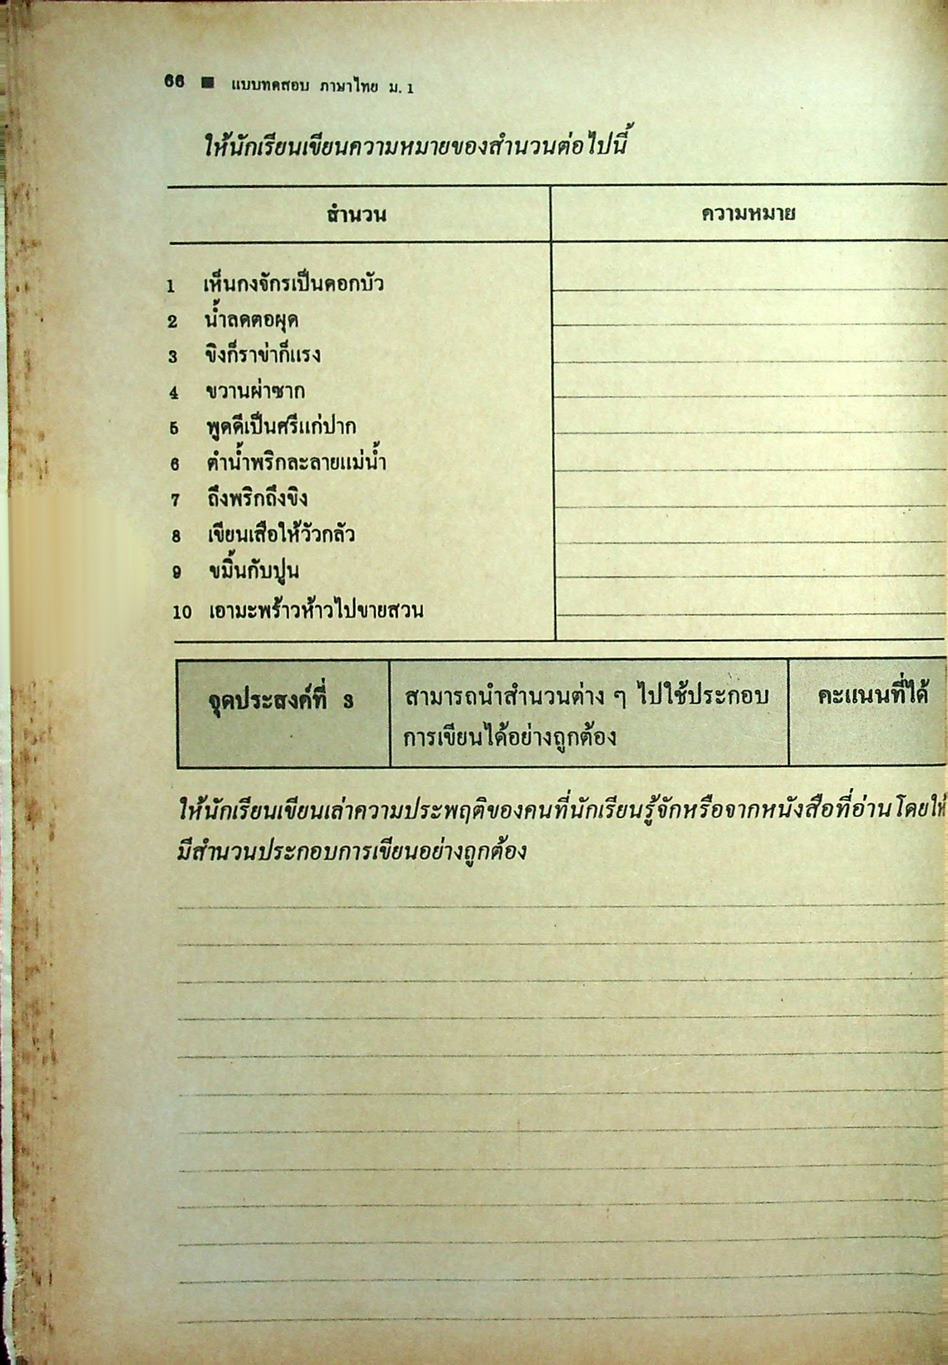 66 ■ แบบทดสอบ ภาษาไทย ม. 1
ให้นักเรียนเขียนความหมายของสำนวนต่อไปนี้
สำนวน ความหมาย
1 เห็นกงจักรเป็นดอกบัว
2 น้ำลดตอผุด
3 ขิงก็ราข่าก็แรง
4 ขวานผ่าซาก
5 พูดดีเป็นศรีแก่ปาก
6 ตำน้ำพริกละลายแม่น้ำ
7 ถึงพริกถึงขิง
8 เขียนเสือให้วัวกลัว
9 ขมิ้นกับปูน
10 เอามะพร้าวห้าวไปขายสวน
จุดประสงค์ที่ 3 สามารถนำสำนวนต่าง ๆ ไปใช้ประกอบ คะแนนที่ได้
การเขียนได้อย่างถูกต้อง
ให้นักเรียนเขียนเล่าความประพฤติของคนที่นักเรียนรู้จักหรือจากหนังสือที่อ่าน โดยให้
มีสำนวนประกอบการเขียนอย่างถูกต้อง